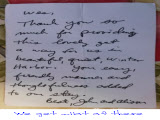 Wes.
Thank you so
much for providing
this lovely get
a way for us in
beautiful, quiet, Winter
Harbor. Your easy,
friendly manner and
thoughtfulness added
to our stay.
Best,
We get mail at these